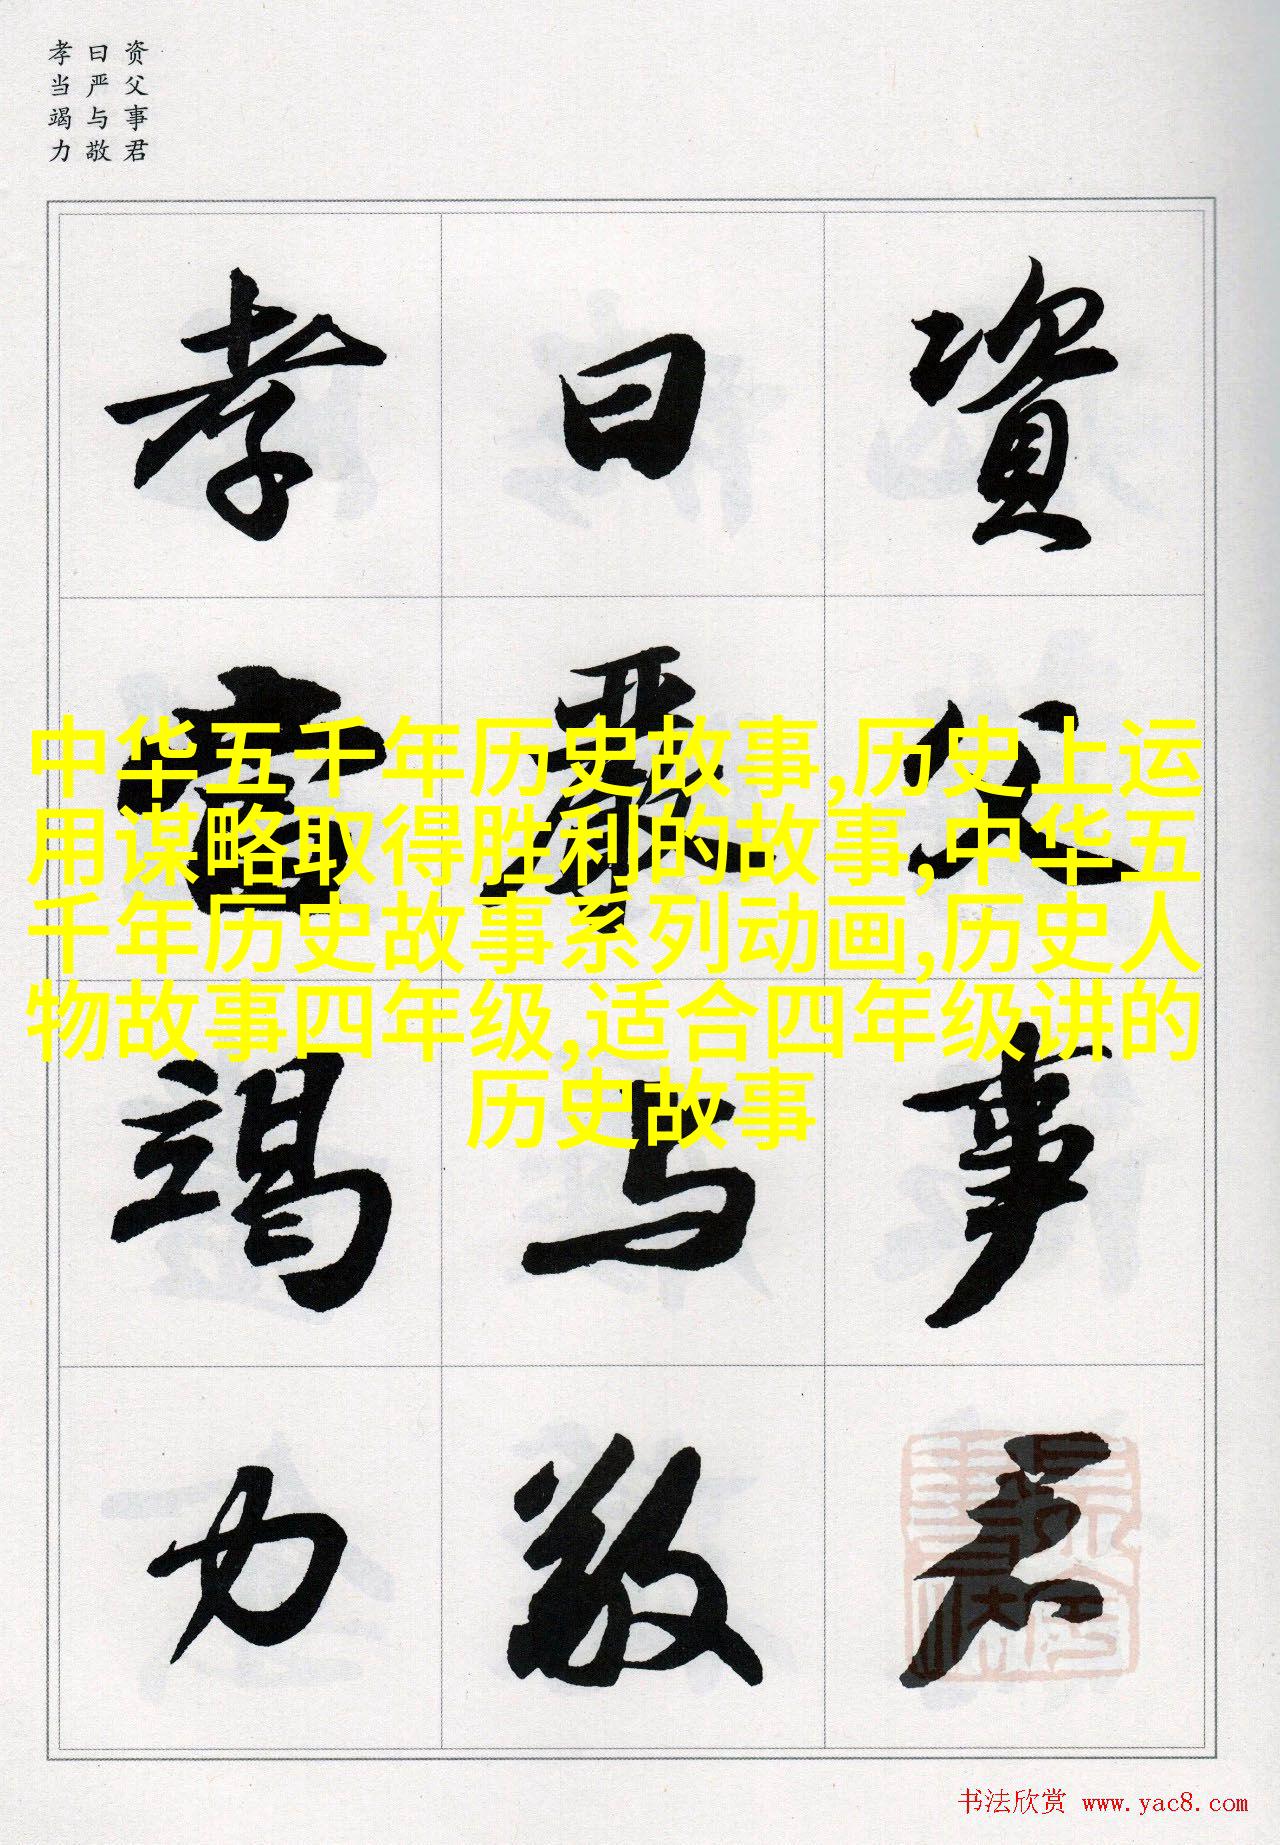 资父事君
曰严与敬
孝当竭力
資父事君
曰嚴与敬
孝當竭力
中华五千年历史故事,历史上运
用谋略取得胜利的故事,中华五
千年历史故事系列动画,历史人
物故事四年级,适合四年级讲的
历史故事
书法欣赏 www.yac8.com